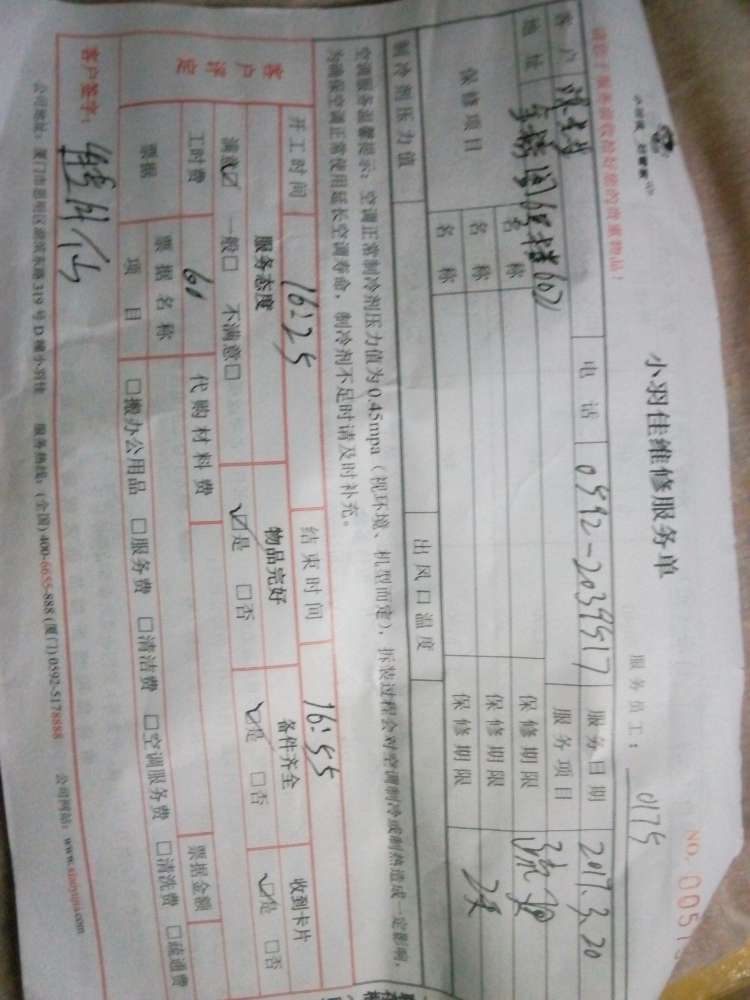 小羽佳维修服务单
NO. 0051
服务员工： 0175
请您于服务前收拾好您的贵重物品！
客户 电话 0592-2039517 服务日期 2017.3.20
地址 602 服务项目
保修项目 名称 保修期限
名称 保修期限
名称 保修期限
制冷剂压力值 出风口温度
空调服务温馨提示：空调正常制冷剂压力值为0.45mpa（视环境、机型而定），拆装过程会对空调制冷或制热造成一定影响，
为确保空调正常使用延长空调寿命，制冷剂不足时请及时补充。
开工时间 16:25 结束时间 16:55
客户评定 服务态度 物品完好 备件齐全 收到卡片
满意☑ 一般□ 不满意□ ☑是 □否 ☑是 □否 ☑是 □否
工时费 60 代购材料费 票据金额
票据 票据名称
项目 □搬办公用品 □服务费 □清洁费 □空调服务费 □清洗费 □疏通费
客户签字：
公司地址：厦门市思明区湖滨东路319号D幢小羽佳 服务热线：(全国)400-6655-888 (厦门)0592-5178888 公司网站：www.xiaoyujia.com